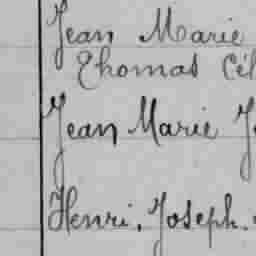 Jean Marie
Thomas Cél
Jean Marie J
Henri, Joseph.